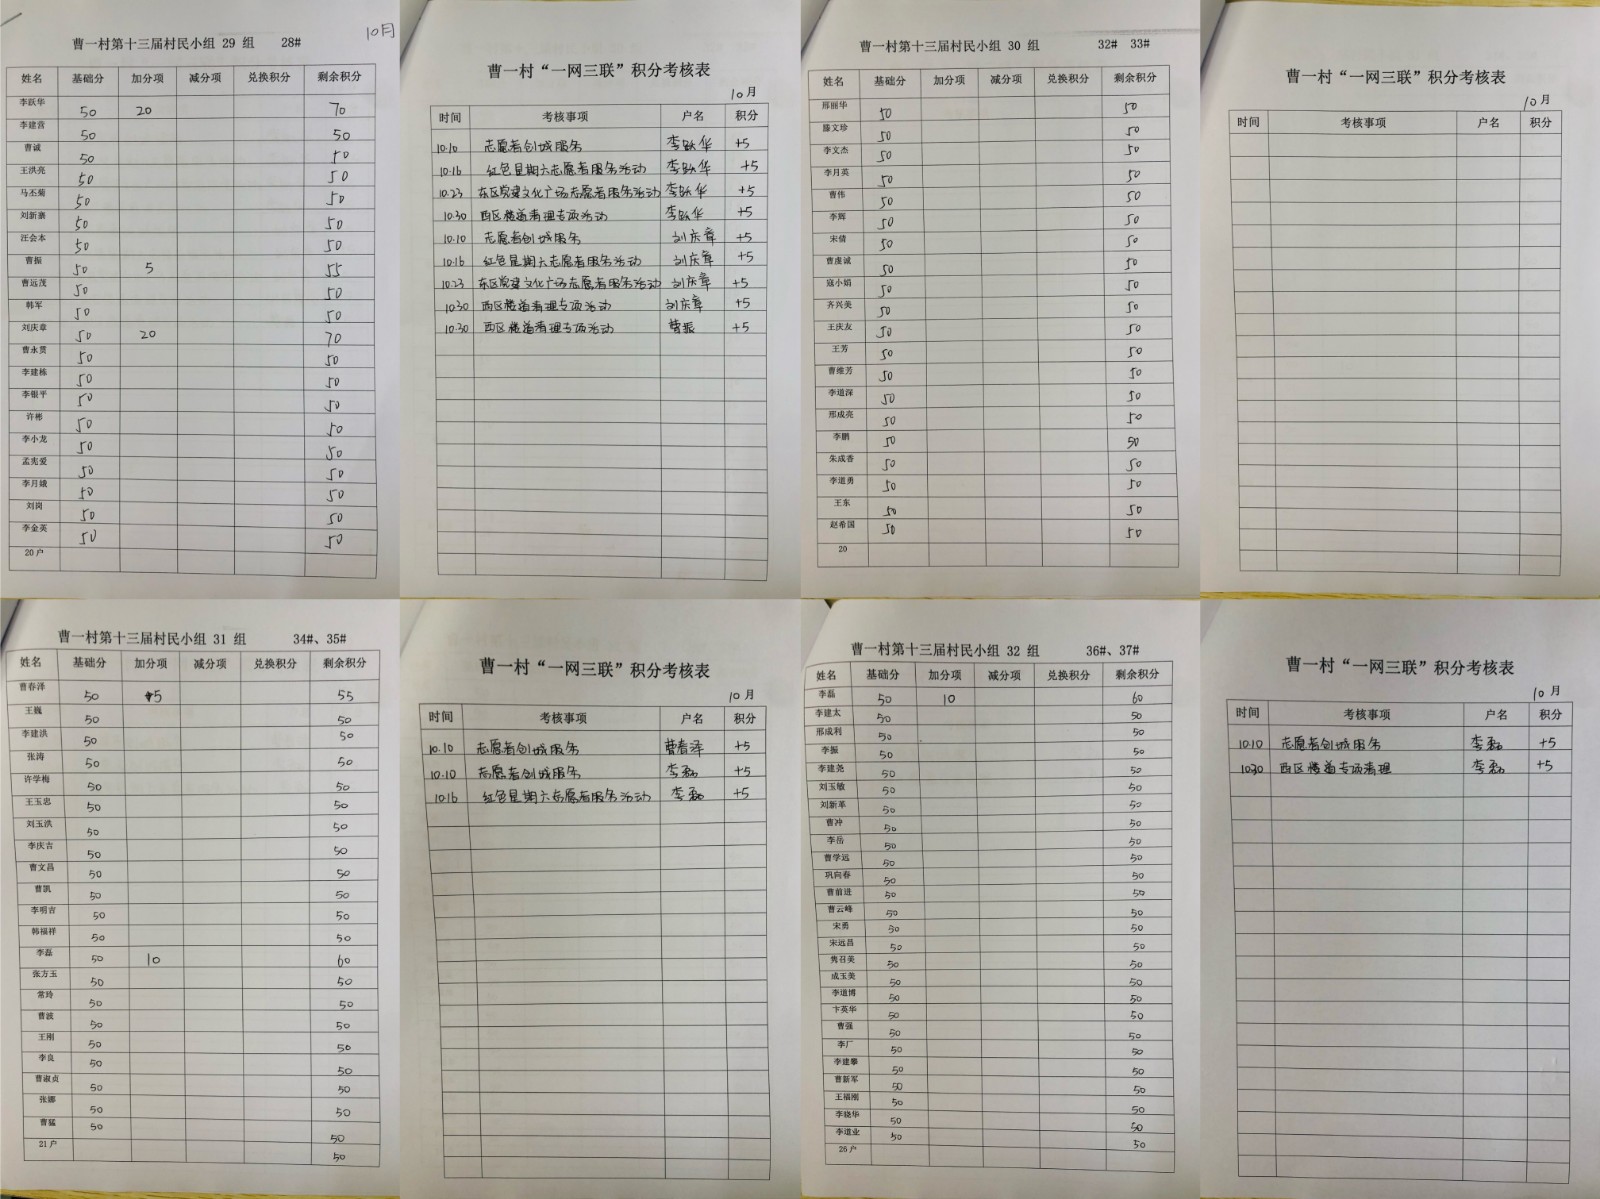 10月
曹一村第十三届村民小组 29 组 28#
姓名 基础分 加分项 减分项 兑换积分 剩余积分
李跃华 50 20 70
李建营 50 50
曹诚 50 50
王洪亮 50 50
马丕菊 50 50
刘新寨 50 50
汪会本 50 50
曹振 50 5 55
曹远茂 50 50
韩军 50 50
刘庆章 50 20 70
曹永贯 50 50
李建栋 50 50
李银平 50 50
许彬 50 50
李小龙 50 50
孟宪爱 50 50
李月娥 50 50
刘岗 50 50
李金英 50 50
20户
曹一村“一网三联”积分考核表
10月
时间 考核事项 户名 积分
10.10 志愿者创城服务 李跃华 +5
10.16 红色星期六志愿者服务活动 李跃华 +5
10.23 东区党建文化广场志愿者服务活动 李跃华 +5
10.30 西区楼道清理专项活动 李跃华 +5
10.10 志愿者创城服务 刘庆章 +5
10.16 红色星期六志愿者服务活动 刘庆章 +5
10.23 东区党建文化广场志愿者服务活动 刘庆章 +5
10.30 西区楼道清理专项活动 刘庆章 +5
10.30 西区楼道清理专项活动 曹振 +5
曹一村第十三届村民小组 30 组 32# 33#
姓名 基础分 加分项 减分项 兑换积分 剩余积分
邢丽华 50 50
滕文珍 50 50
李文杰 50 50
李月英 50 50
曹伟 50 50
李辉 50 50
宋倩 50 50
曹虔诚 50 50
寇小娟 50 50
齐兴美 50 50
王庆友 50 50
王芳 50 50
曹维芳 50 50
李道深 50 50
邢成亮 50 50
李鹏 50 50
朱成香 50 50
李道勇 50 50
王东 50 50
赵希国 50 50
20
曹一村“一网三联”积分考核表
10月
时间 考核事项 户名 积分
曹一村第十三届村民小组 31 组 34#、35#
姓名 基础分 加分项 减分项 兑换积分 剩余积分
曹春泽 50 5 55
王巍 50 50
李建洪 50 50
张涛 50 50
许学梅 50 50
王玉忠 50 50
刘玉洪 50 50
李庆吉 50 50
曹文昌 50 50
曹凯 50 50
李明吉 50 50
韩福祥 50 50
李磊 50 10 60
张方玉 50 50
常玲 50 50
曹波 50 50
王刚 50 50
李良 50 50
曹淑贞 50 50
张娜 50 50
曹猛 50 50
21户 50
曹一村“一网三联”积分考核表
10月
时间 考核事项 户名 积分
10.10 志愿者创城服务 曹春泽 +5
10.10 志愿者创城服务 李磊 +5
10.16 红色星期六志愿者服务活动 李磊 +5
曹一村第十三届村民小组 32 组 36#、37#
姓名 基础分 加分项 减分项 兑换积分 剩余积分
李磊 50 10 60
李建太 50 50
邢成利 50 50
李振 50 50
李建尧 50 50
刘玉敏 50 50
刘新革 50 50
曹冲 50 50
李岳 50 50
曹学远 50 50
巩向春 50 50
曹前进 50 50
曹云峰 50 50
宋勇 50 50
宋远昌 50 50
隽召美 50 50
成玉美 50 50
李道博 50 50
卞英华 50 50
曹强 50 50
李厂 50 50
李建攀 50 50
曹新军 50 50
王福刚 50 50
李晓华 50 50
李道业 50 50
26户
曹一村“一网三联”积分考核表
10月
时间 考核事项 户名 积分
10.10 志愿者创城服务 李磊 +5
10.30 西区楼道专项清理 李磊 +5